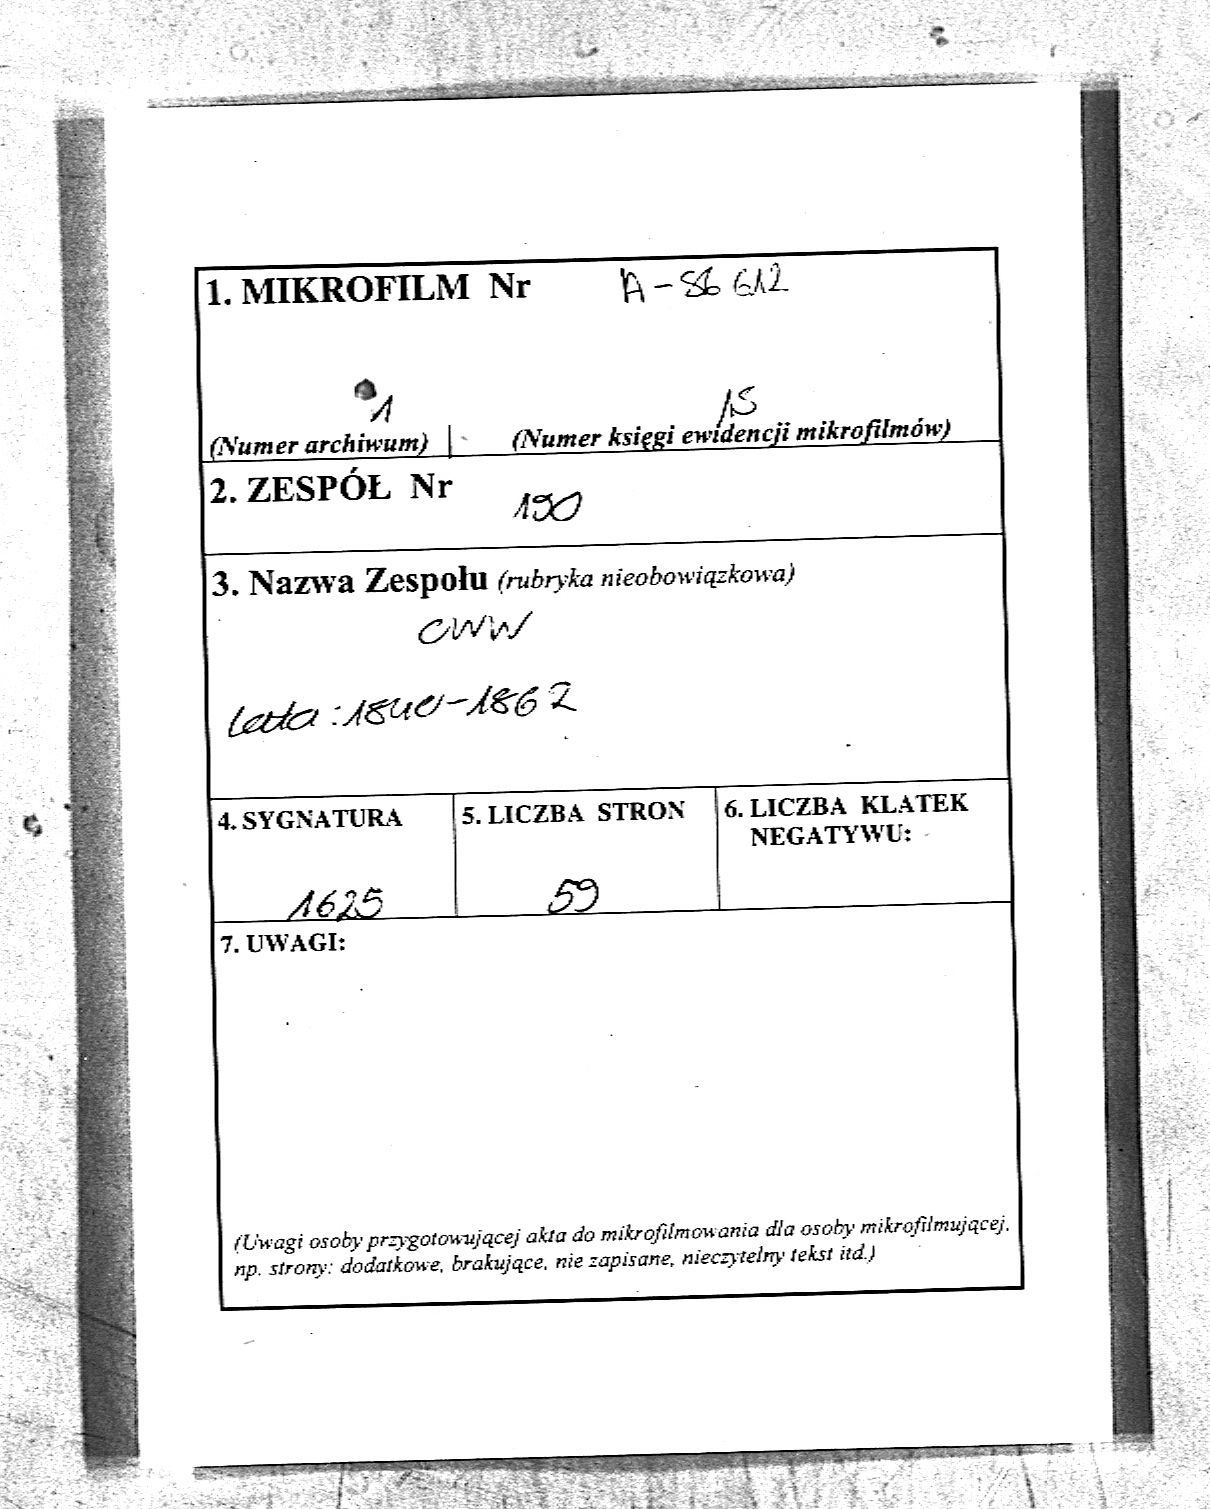 1. MIKROFILM Nr A-86 612
1 15
(Numer archiwum) (Numer księgi ewidencji mikrofilmów)
2. ZESPÓŁ Nr
190
3. Nazwa Zespołu (rubryka nieobowiązkowa)
CWW
lata: 1840-1862
4. SYGNATURA 5. LICZBA STRON 6. LICZBA KLATEK
NEGATYWU:
1625 59
7. UWAGI:
(Uwagi osoby przygotowującej akta do mikrofilmowania dla osoby mikrofilmującej,
np. strony: dodatkowe, brakujące, nie zapisane, nieczytelny tekst itd.)